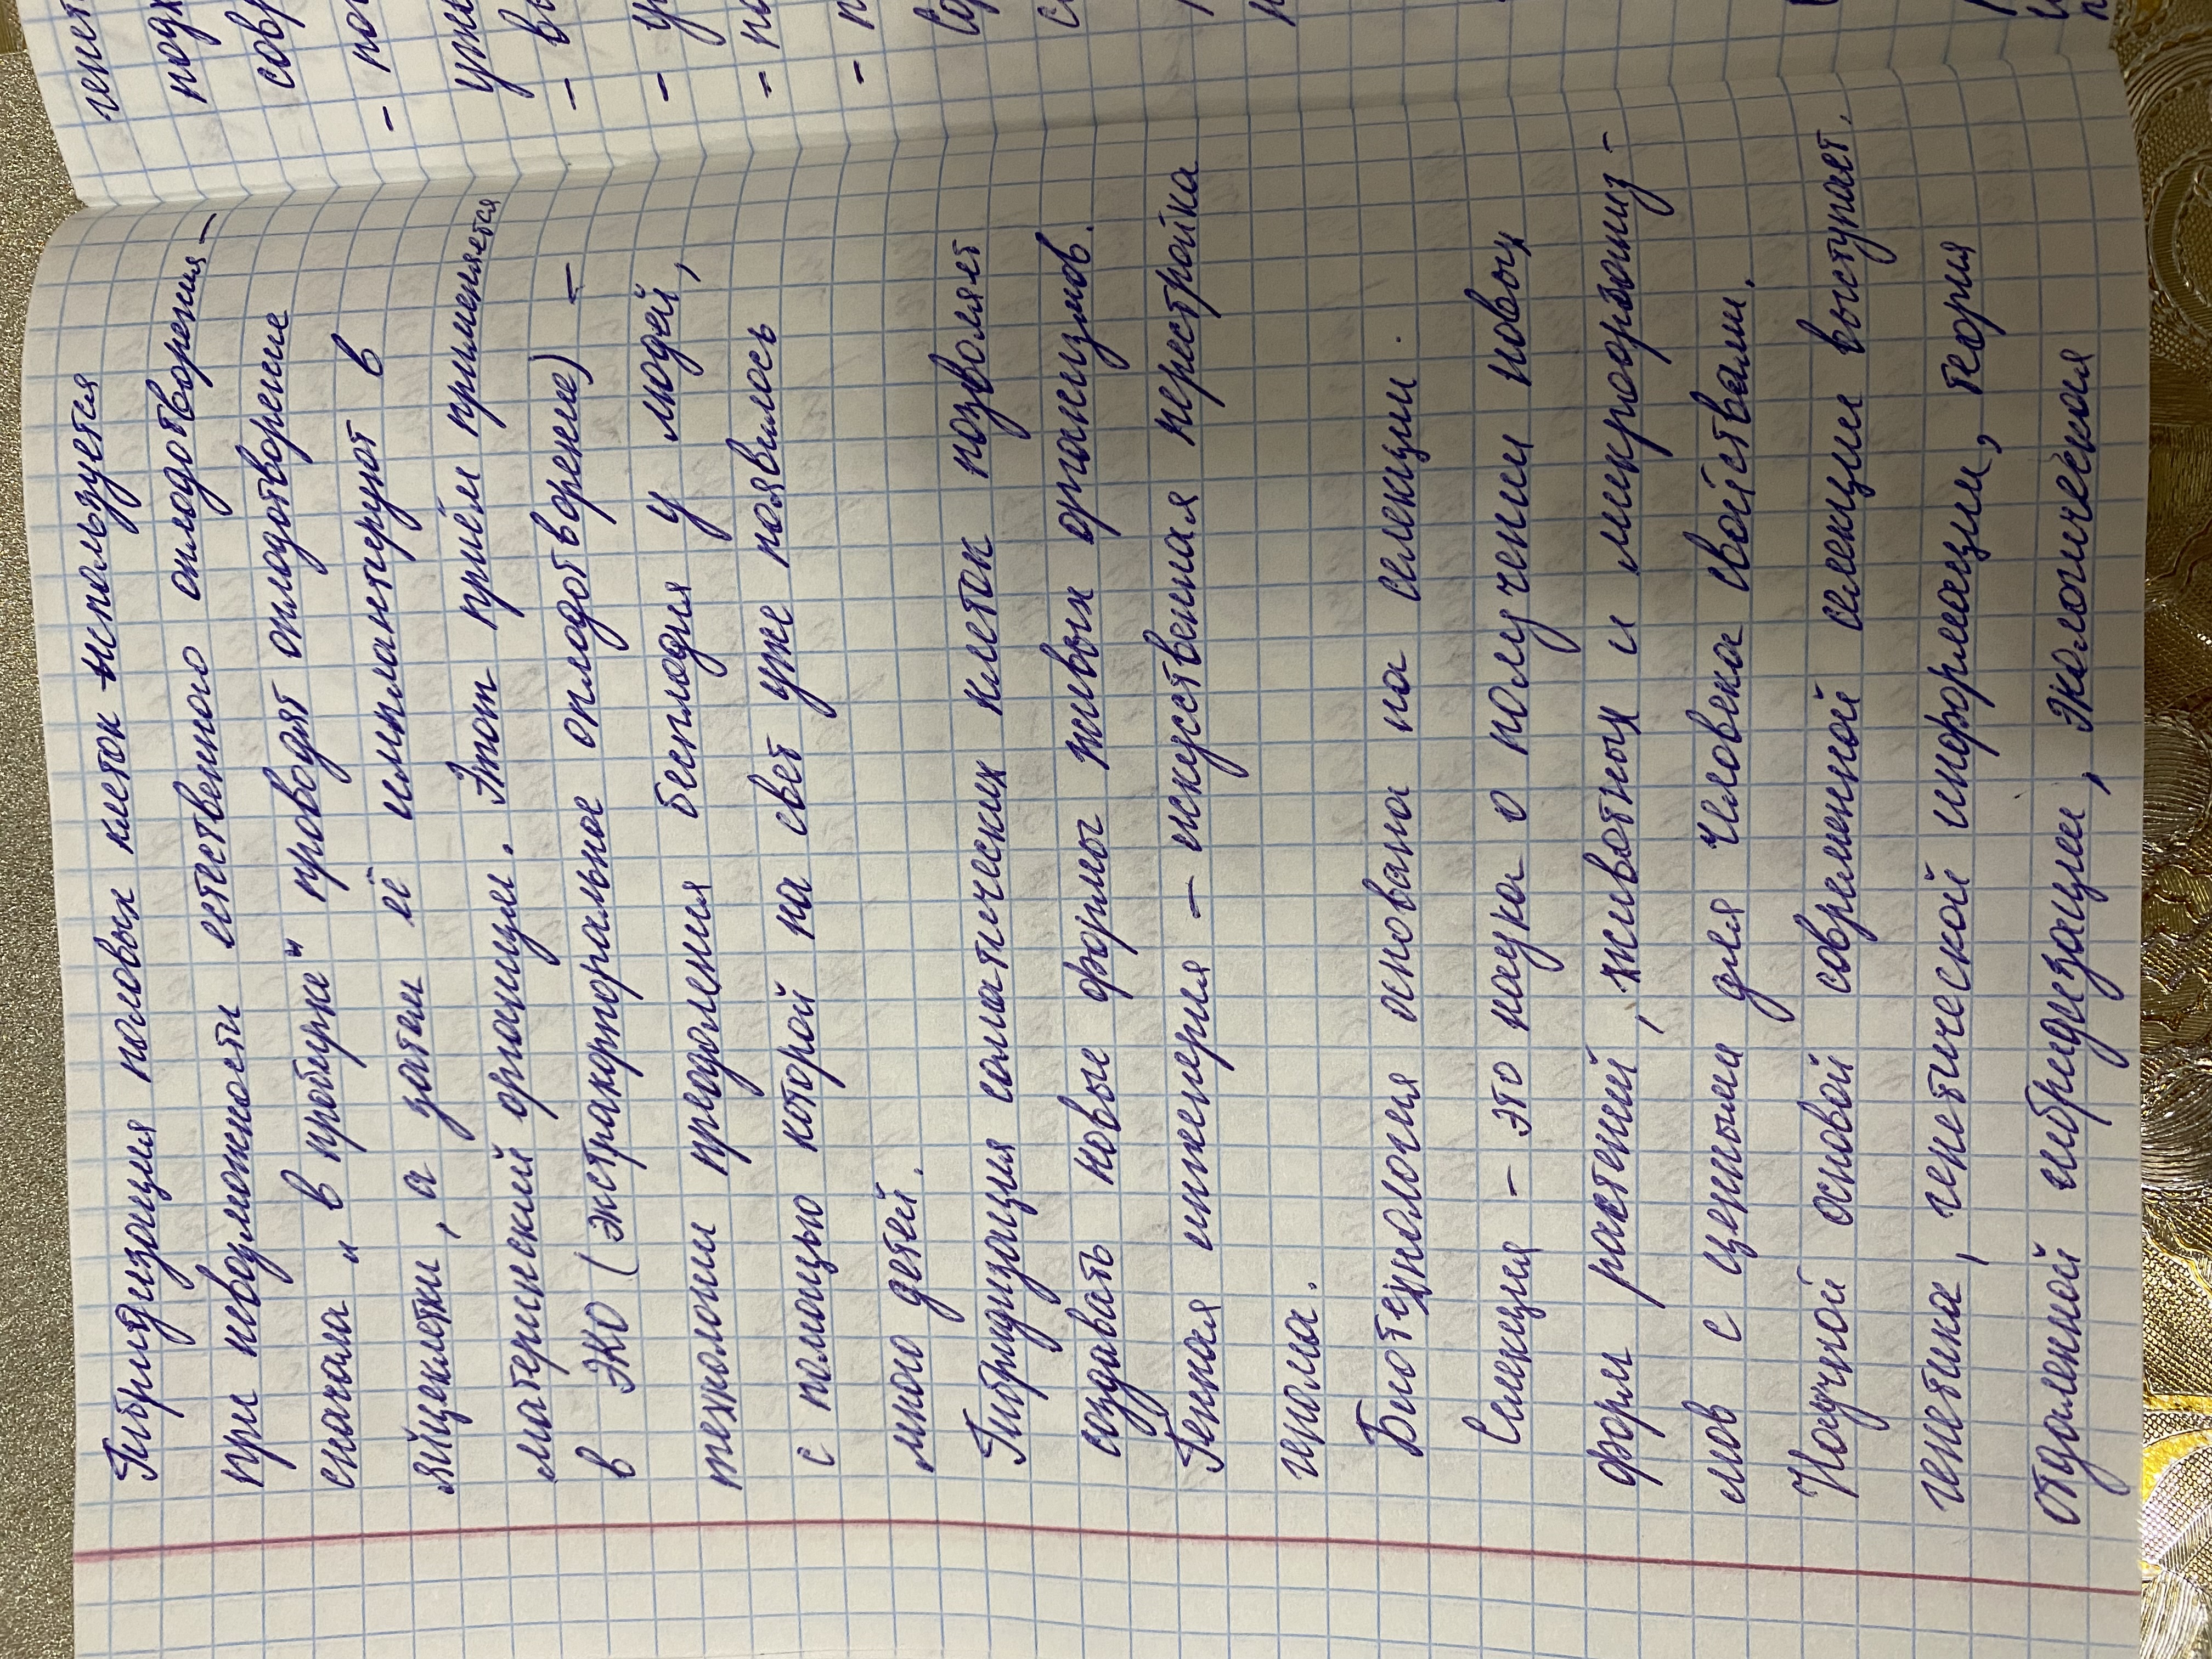 Гибридизация половых клеток используется
при невозможности естественного оплодотворения –
сначала „в пробирке" проводят оплодотворение
яйцеклетки, а затем её имплантируют в
материнский организм. Этот приём применяется
в ЭКО (экстракорпоральное оплодотворение) –
технологии преодоления бесплодия у людей,
с помощью которой на свет уже появилось
много детей.
Гибридизация соматических клеток позволяет
создавать новые формы живых организмов.
Генная инженерия – искусственная перестройка
генома.
Биотехнология основана на селекции.
Селекция – это наука о получении новых
форм растений, животных и микроорганиз-
мов с ценными для человека свойствами.
Научной основой современной селекции выступает.
генетика, генетической информации, теория
отдаленной гибридизации, экологическая